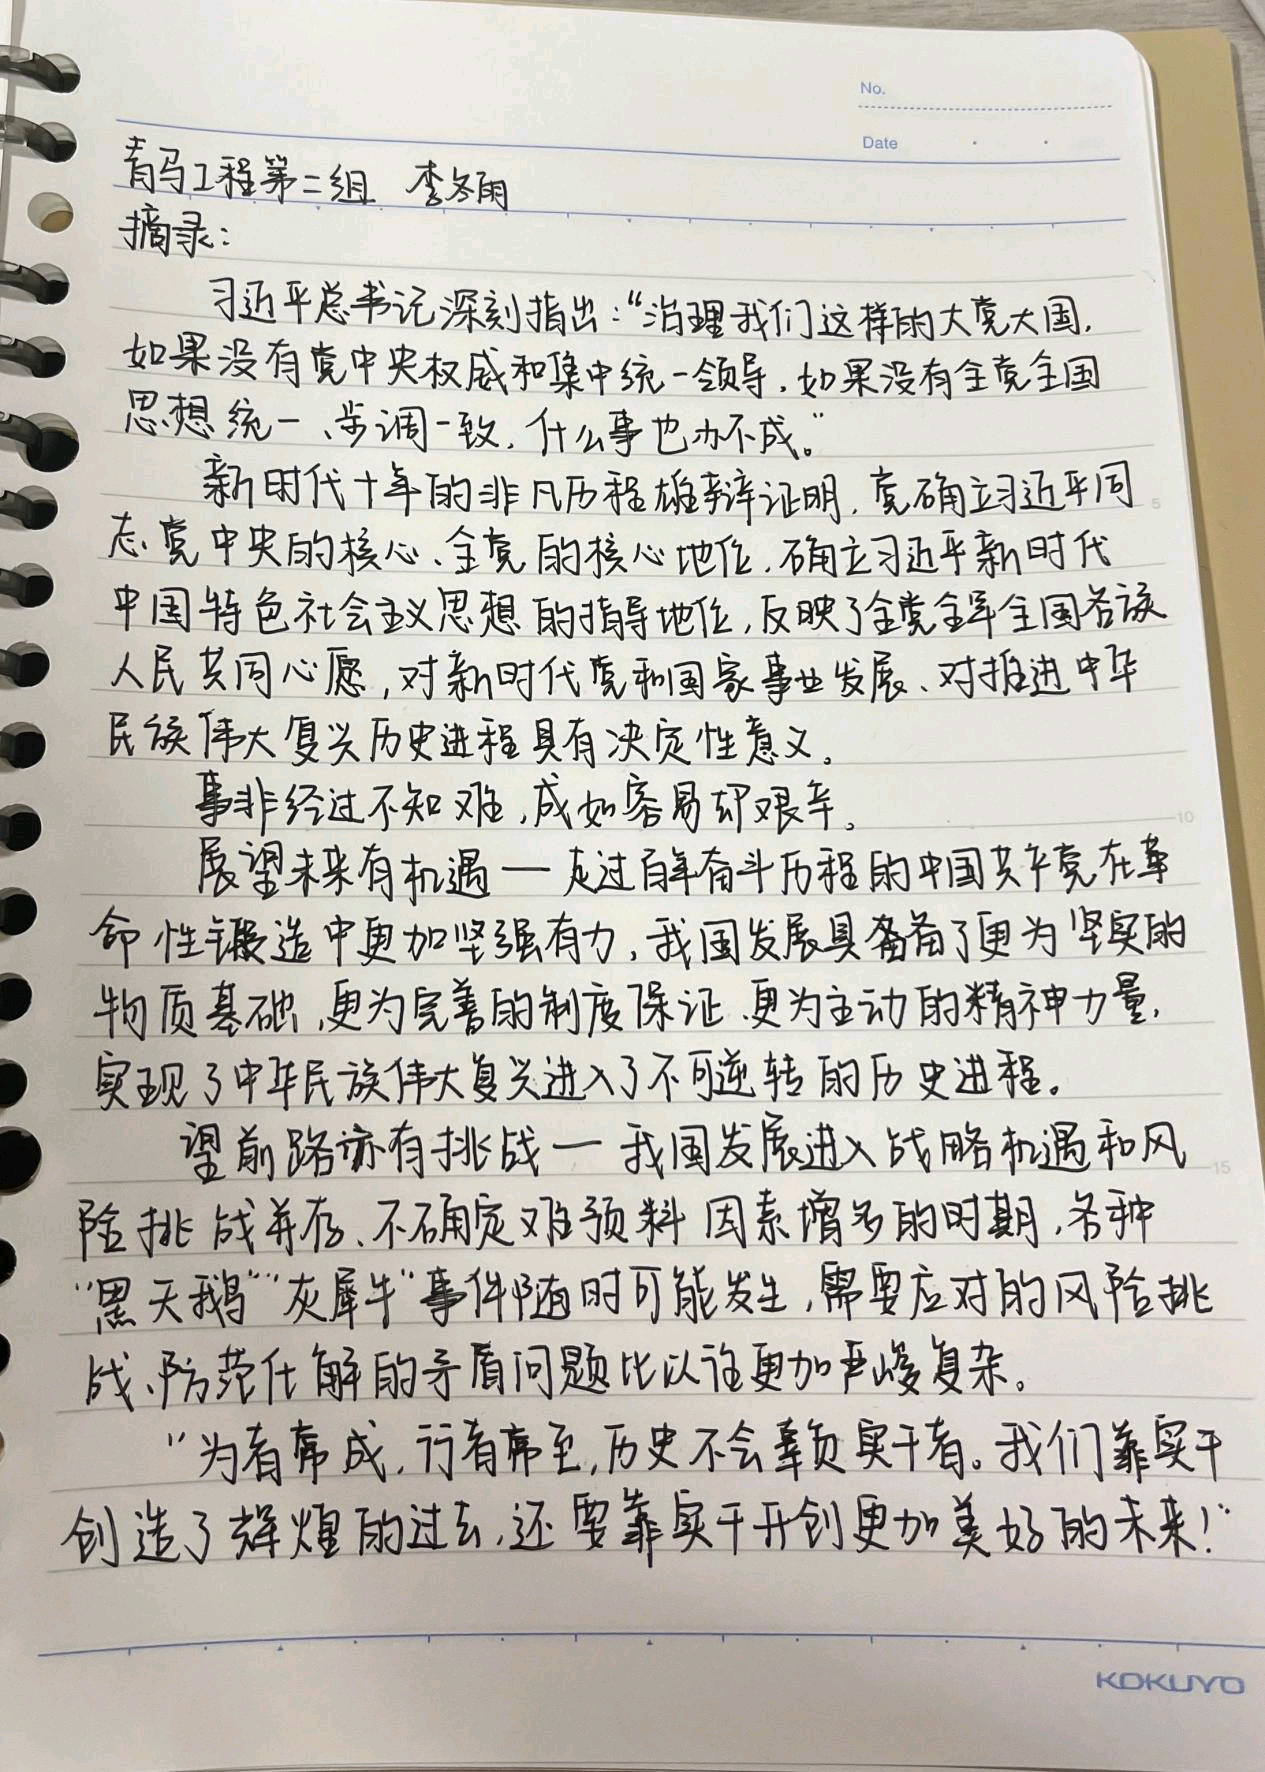 No.
Date
青马工程第二组 李冬雨
摘录:
习近平总书记深刻指出:“治理我们这样的大党大国,
如果没有党中央权威和集中统一领导,如果没有全党全国
思想统一、步调一致,什么事也办不成。”
新时代十年的非凡历程雄辩证明,党确立习近平同
志党中央的核心、全党的核心地位,确立习近平新时代
中国特色社会主义思想的指导地位,反映了全党全军全国各族
人民共同心愿,对新时代党和国家事业发展、对推进中华
民族伟大复兴历史进程具有决定性意义。
事非经过不知难,成如容易却艰辛。
展望未来有机遇一走过百年奋斗历程的中国共产党在革
命性锻造中更加坚强有力,我国发展具备了更为坚实的
物质基础、更为完善的制度保证、更为主动的精神力量,
实现了中华民族伟大复兴进入了不可逆转的历史进程。
望前路亦有挑战一我国发展进入战略机遇和风
险挑战并存、不确定难预料因素增多的时期,各种
“黑天鹅”“灰犀牛”事件随时可能发生,需要应对的风险挑
战、防范化解的矛盾问题比以往更加严峻复杂。
“为者常成,行者常至,历史不会辜负实干者。我们靠实干
创造了辉煌的过去,还要靠实干开创更加美好的未来!”
5
10
15
KOKUYO